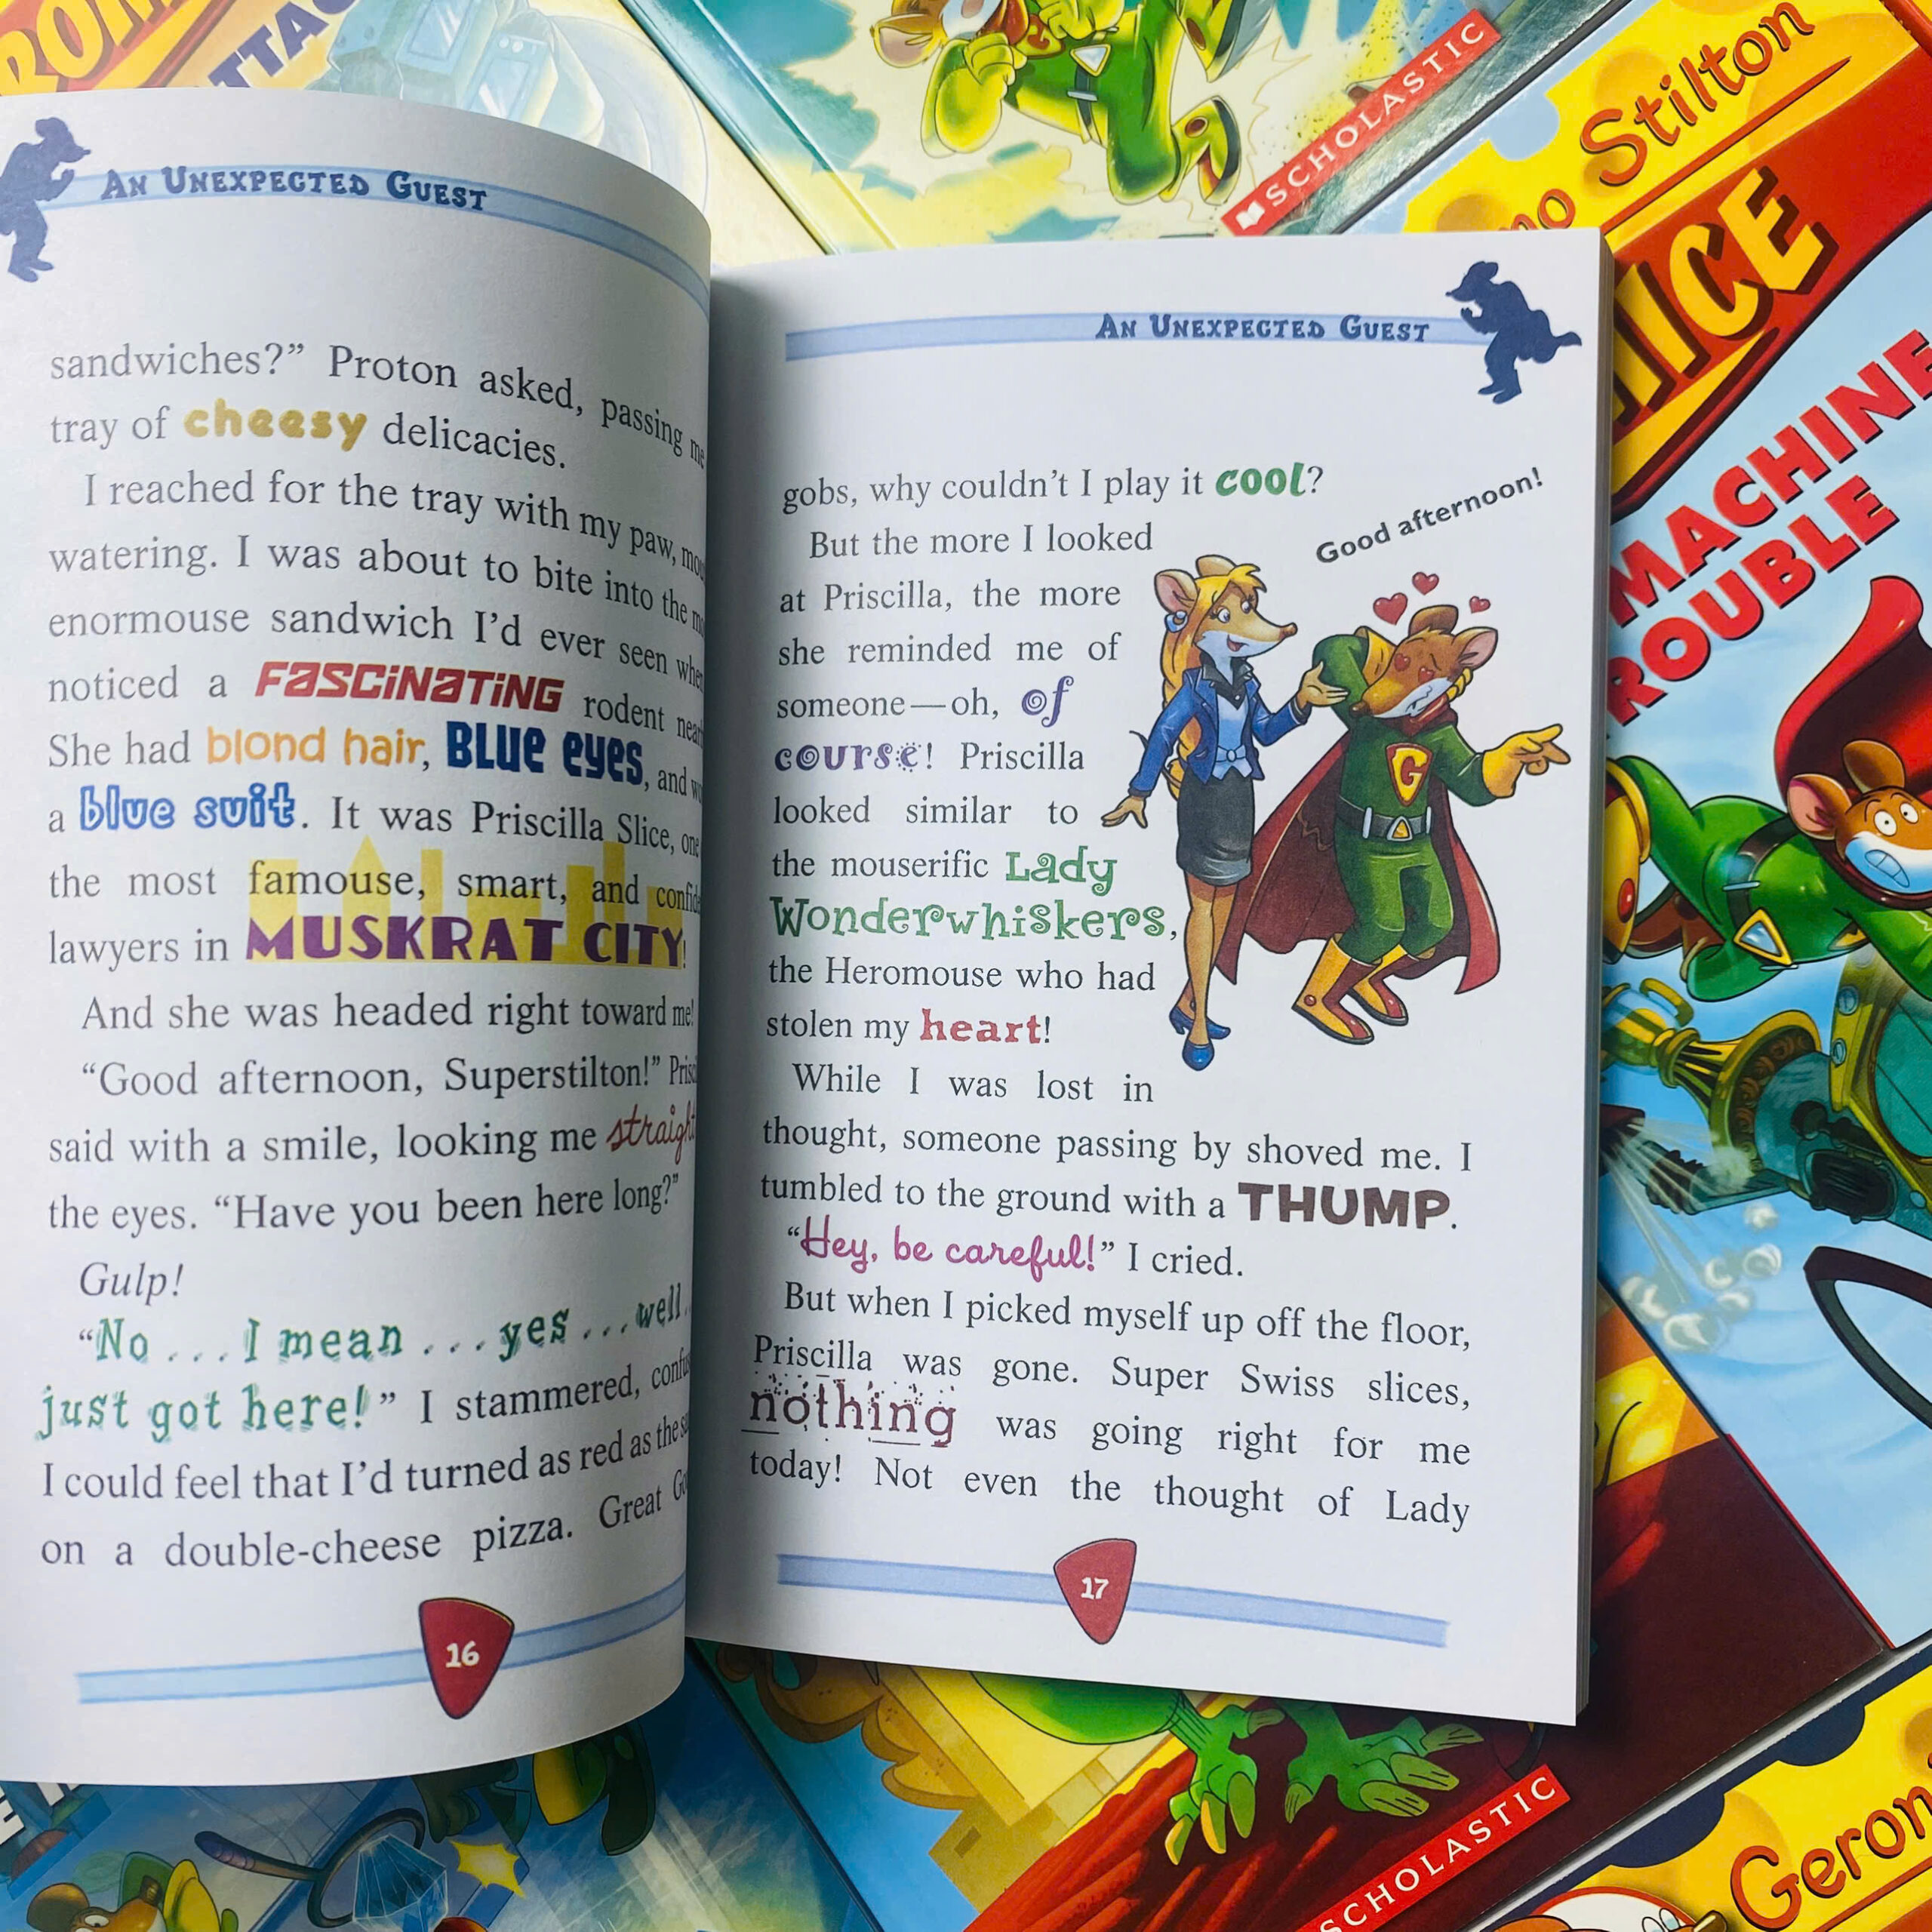 AN UNEXPECTED GUEST
sandwiches?” Proton asked, passing me
tray of cheesy delicacies.
I reached for the tray with my paw,
watering. I was about to bite into the
enormouse sandwich I’d ever seen
noticed a FASCINATING rodent
She had blond hair, BLUE eyes, and
a blue suit. It was Priscilla Slice, one
the most famouse, smart, and
lawyers in MUSKRAT CITY!
And she was headed right toward me!
“Good afternoon, Superstilton!”
said with a smile, looking me straight
the eyes. “Have you been here long?”
Gulp!
“No . . . I mean . . . yes . . . well
just got here!” I stammered,
I could feel that I’d turned as red as the
on a double-cheese pizza. Great
16
AN UNEXPECTED GUEST
gobs, why couldn’t I play it cool?
But the more I looked
at Priscilla, the more
she reminded me of
someone—oh, of
course! Priscilla
looked similar to
the mouserific Lady
Wonderwhiskers,
the Heromouse who had
stolen my heart!
While I was lost in
thought, someone passing by shoved me. I
tumbled to the ground with a THUMP.
“Hey, be careful!” I cried.
But when I picked myself up off the floor,
Priscilla was gone. Super Swiss slices,
nothing was going right for me
today! Not even the thought of Lady
17
Good afternoon!
SCHOLASTIC
Stilton
MICE
MACHINE
SCHOLASTIC